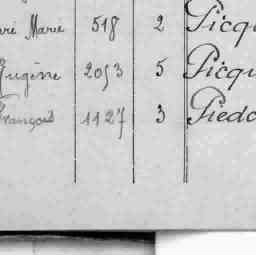 Marie 518 2 Picq
Eugène 2053 5 Picqu
François 1127 3 Piedo